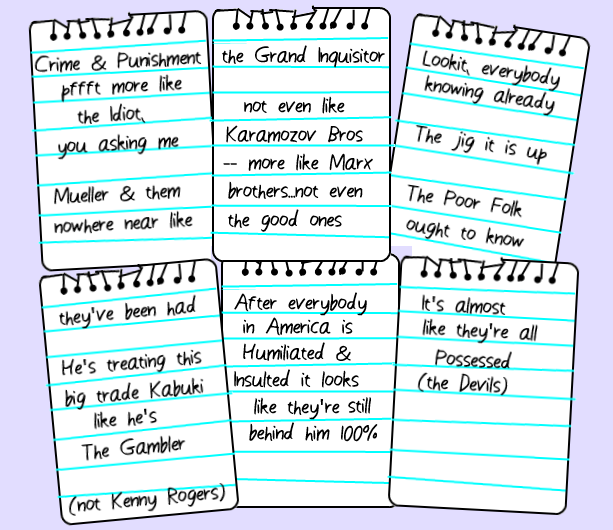 Crime & Punishment
pffft more like
the Idiot,
you asking me
Mueller & them
nowhere near like
the Grand Inquisitor
not even like
Karamozov Bros
-- more like Marx
brothers...not even
the good ones
Lookit, everybody
knowing already
The jig it is up
The Poor Folk
ought to know
they've been had
He's treating this
big trade Kabuki
like he's
The Gambler
(not Kenny Rogers)
After everybody
in America is
Humiliated &
Insulted it looks
like they're still
behind him 100%
It's almost
like they're all
Possessed
(the Devils)